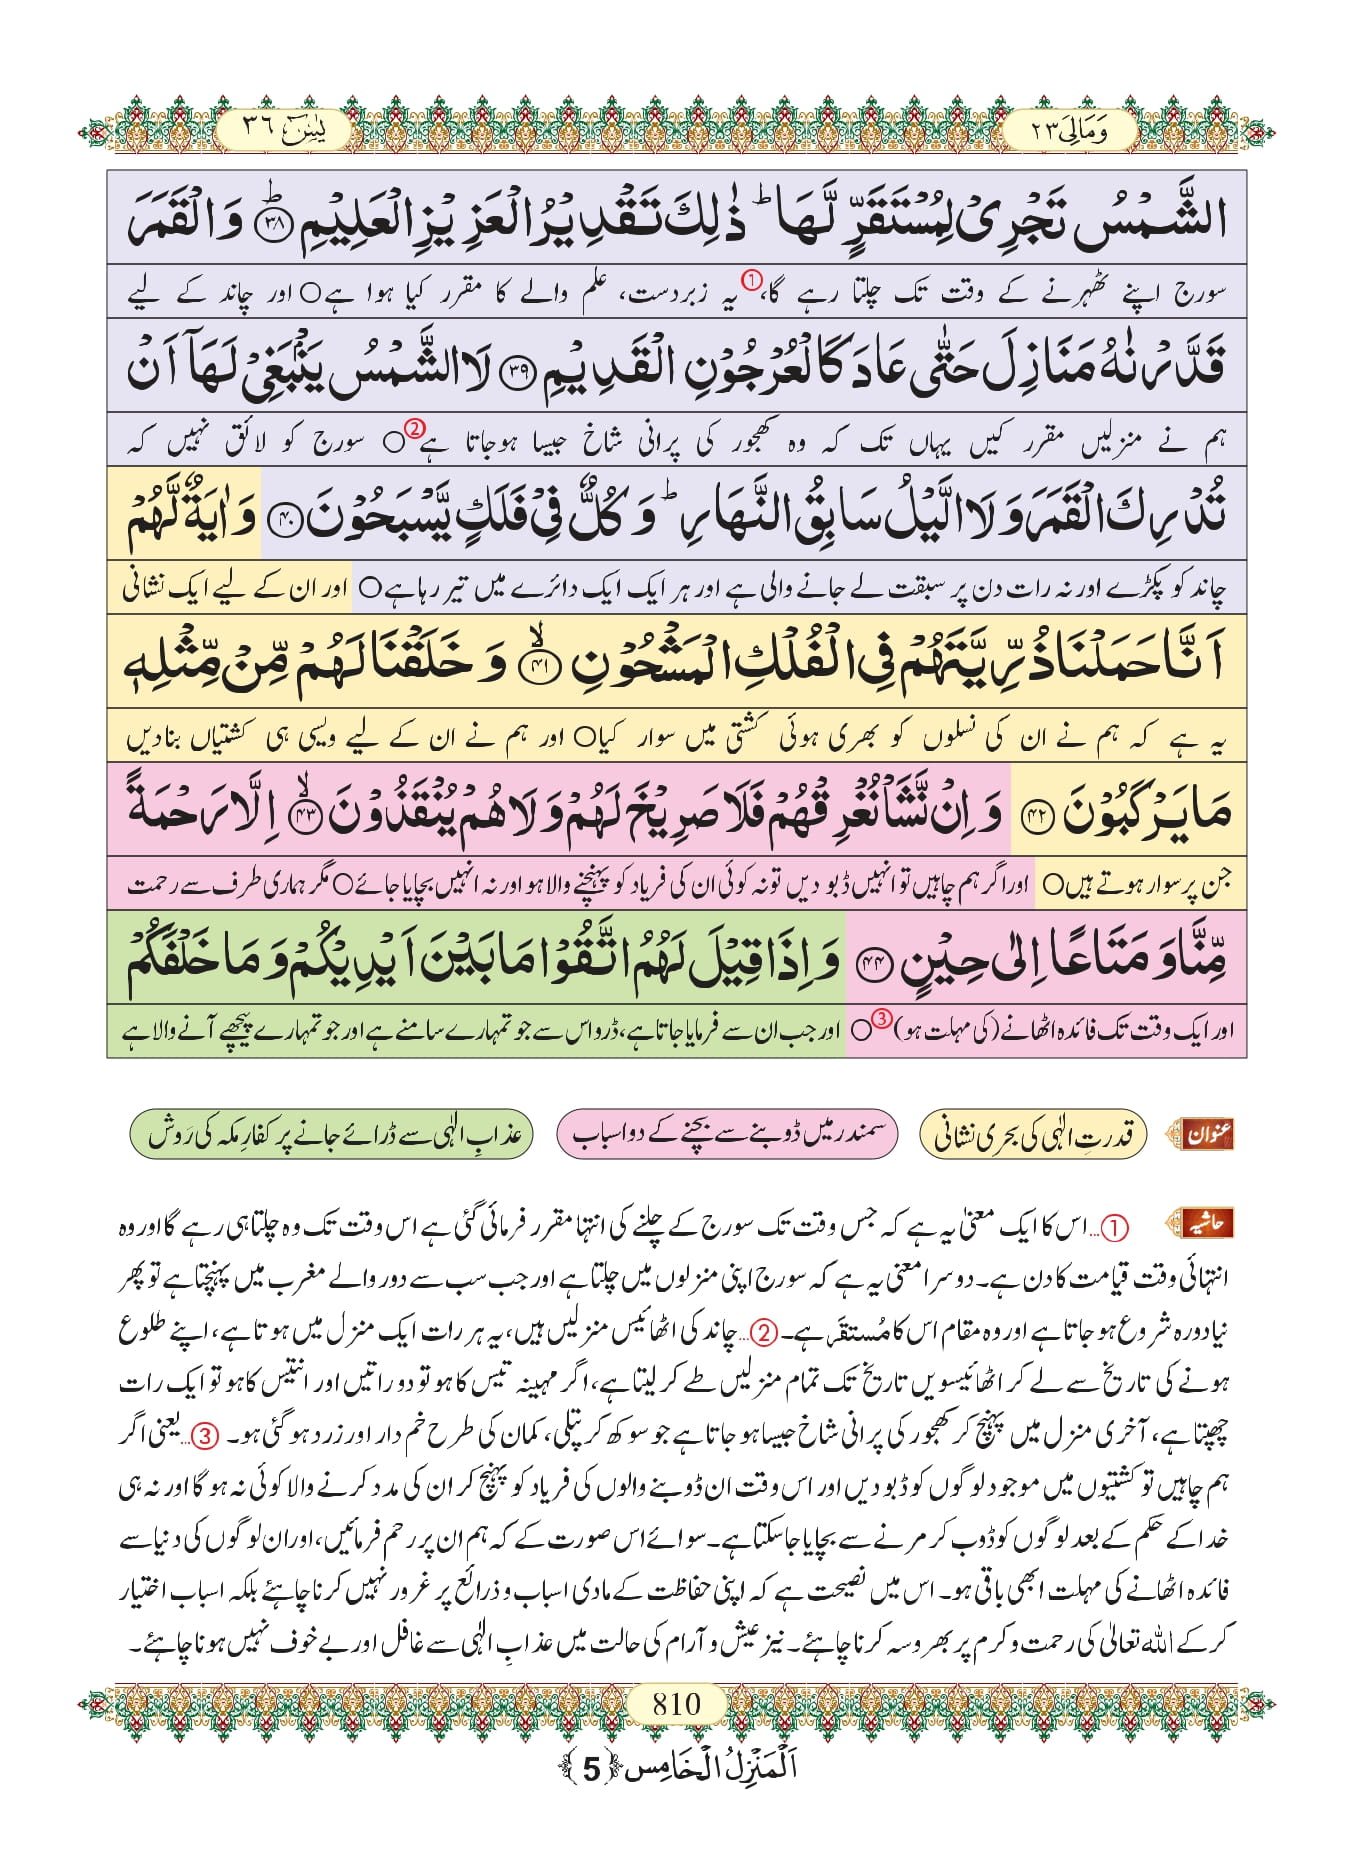 وَمَالِیَ ۲۳
یٰسٓ ۳۶
الشَّمْسُ تَجْرِیْ لِمُسْتَقَرٍّ لَّهَاؕ ذٰلِكَ تَقْدِیْرُ الْعَزِیْزِ الْعَلِیْمِؕ ۳۸ وَ الْقَمَرَ
سورج اپنے ٹھہرنے کے وقت تک چلتا رہے گا، ① یہ زبردست، علم والے کا مقرر کیا ہوا ہے○ اور چاند کے لیے
قَدَّرْنٰهُ مَنَازِلَ حَتّٰى عَادَ كَالْعُرْجُوْنِ الْقَدِیْمِ ۳۹ لَا الشَّمْسُ یَنْۢبَغِیْ لَهَاۤ اَنْ
ہم نے منزلیں مقرر کیں یہاں تک کہ وہ کھجور کی پرانی شاخ جیسا ہوجاتا ہے② ○ سورج کو لائق نہیں کہ
تُدْرِكَ الْقَمَرَ وَ لَا الَّیْلُ سَابِقُ النَّهَارِؕ وَ كُلٌّ فِیْ فَلَكٍ یَّسْبَحُوْنَ ۴۰ وَ اٰیَةٌ لَّهُمْ
چاند کو پکڑے اور نہ رات دن پر سبقت لے جانے والی ہے اور ہر ایک ایک دائرے میں تیر رہا ہے○ اور ان کے لیے ایک نشانی
اَنَّا حَمَلْنَا ذُرِّیَّتَهُمْ فِی الْفُلْكِ الْمَشْحُوْنِۙ ۴۱ وَ خَلَقْنَا لَهُمْ مِّنْ مِّثْلِهٖ
یہ ہے کہ ہم نے ان کی نسلوں کو بھری ہوئی کشتی میں سوار کیا○ اور ہم نے ان کے لیے ویسی ہی کشتیاں بنادیں
مَا یَرْكَبُوْنَ ۴۲ وَ اِنْ نَّشَاْ نُغْرِقْهُمْ فَلَا صَرِیْخَ لَهُمْ وَ لَا هُمْ یُنْقَذُوْنَۙ ۴۳ اِلَّا رَحْمَةً
جن پر سوار ہوتے ہیں○ اور اگر ہم چاہیں تو انہیں ڈبو دیں تو نہ کوئی ان کی فریاد کو پہنچنے والا ہو اور نہ انہیں بچایا جائے○ مگر ہماری طرف سے رحمت
مِّنَّا وَ مَتَاعًا اِلٰى حِیْنٍ ۴۴ وَ اِذَا قِیْلَ لَهُمُ اتَّقُوْا مَا بَیْنَ اَیْدِیْكُمْ وَ مَا خَلْفَكُمْ
اور ایک وقت تک فائدہ اٹھانے (کی مہلت ہو)③ ○ اور جب ان سے فرمایا جاتا ہے، ڈرو اس سے جو تمہارے سامنے ہے اور جو تمہارے پیچھے آنے والا ہے
عنوان قدرتِ الٰہی کی بحری نشانی سمندر میں ڈوبنے سے بچنے کے دو اسباب عذابِ الٰہی سے ڈرائے جانے پر کفارِ مکہ کی رَوش
حاشیہ ①... اس کا ایک معنیٰ یہ ہے کہ جس وقت تک سورج کے چلنے کی انتہا مقرر فرمائی گئی ہے اس وقت تک وہ چلتا ہی رہے گا اور وہ
انتہائی وقت قیامت کا دن ہے۔ دوسرا معنی یہ ہے کہ سورج اپنی منزلوں میں چلتا ہے اور جب سب سے دور والے مغرب میں پہنچتا ہے تو پھر
نیا دورہ شروع ہو جاتا ہے اور وہ مقام اس کا مُستقَر ہے۔ ②... چاند کی اٹھائیس منزلیں ہیں، یہ ہر رات ایک منزل میں ہوتا ہے، اپنے طلوع
ہونے کی تاریخ سے لے کر اٹھائیسویں تاریخ تک تمام منزلیں طے کر لیتا ہے، اگر مہینہ تیس کا ہو تو دو راتیں اور انتیس کا ہو تو ایک رات
چھپتا ہے، آخری منزل میں پہنچ کر کھجور کی پرانی شاخ جیسا ہو جاتا ہے جو سوکھ کر پتلی، کمان کی طرح خم دار اور زرد ہو گئی ہو۔ ③... یعنی اگر
ہم چاہیں تو کشتیوں میں موجود لوگوں کو ڈبو دیں اور اس وقت ان ڈوبنے والوں کی فریاد کو پہنچ کر ان کی مدد کرنے والا کوئی نہ ہو گا اور نہ ہی
خدا کے حکم کے بعد لوگوں کو ڈوب کر مرنے سے بچایا جا سکتا ہے۔ سوائے اس صورت کے کہ ہم ان پر رحم فرمائیں، اور ان لوگوں کی دنیا سے
فائدہ اٹھانے کی مہلت ابھی باقی ہو۔ اس میں نصیحت ہے کہ اپنی حفاظت کے مادی اسباب و ذرائع پر غرور نہیں کرنا چاہئے بلکہ اسباب اختیار
کر کے اللہ تعالیٰ کی رحمت و کرم پر بھروسہ کرنا چاہئے۔ نیز عیش و آرام کی حالت میں عذابِ الٰہی سے غافل اور بے خوف نہیں ہونا چاہئے۔
810
اَلْمَنْزِلُ الْخَامِس ﴿5﴾